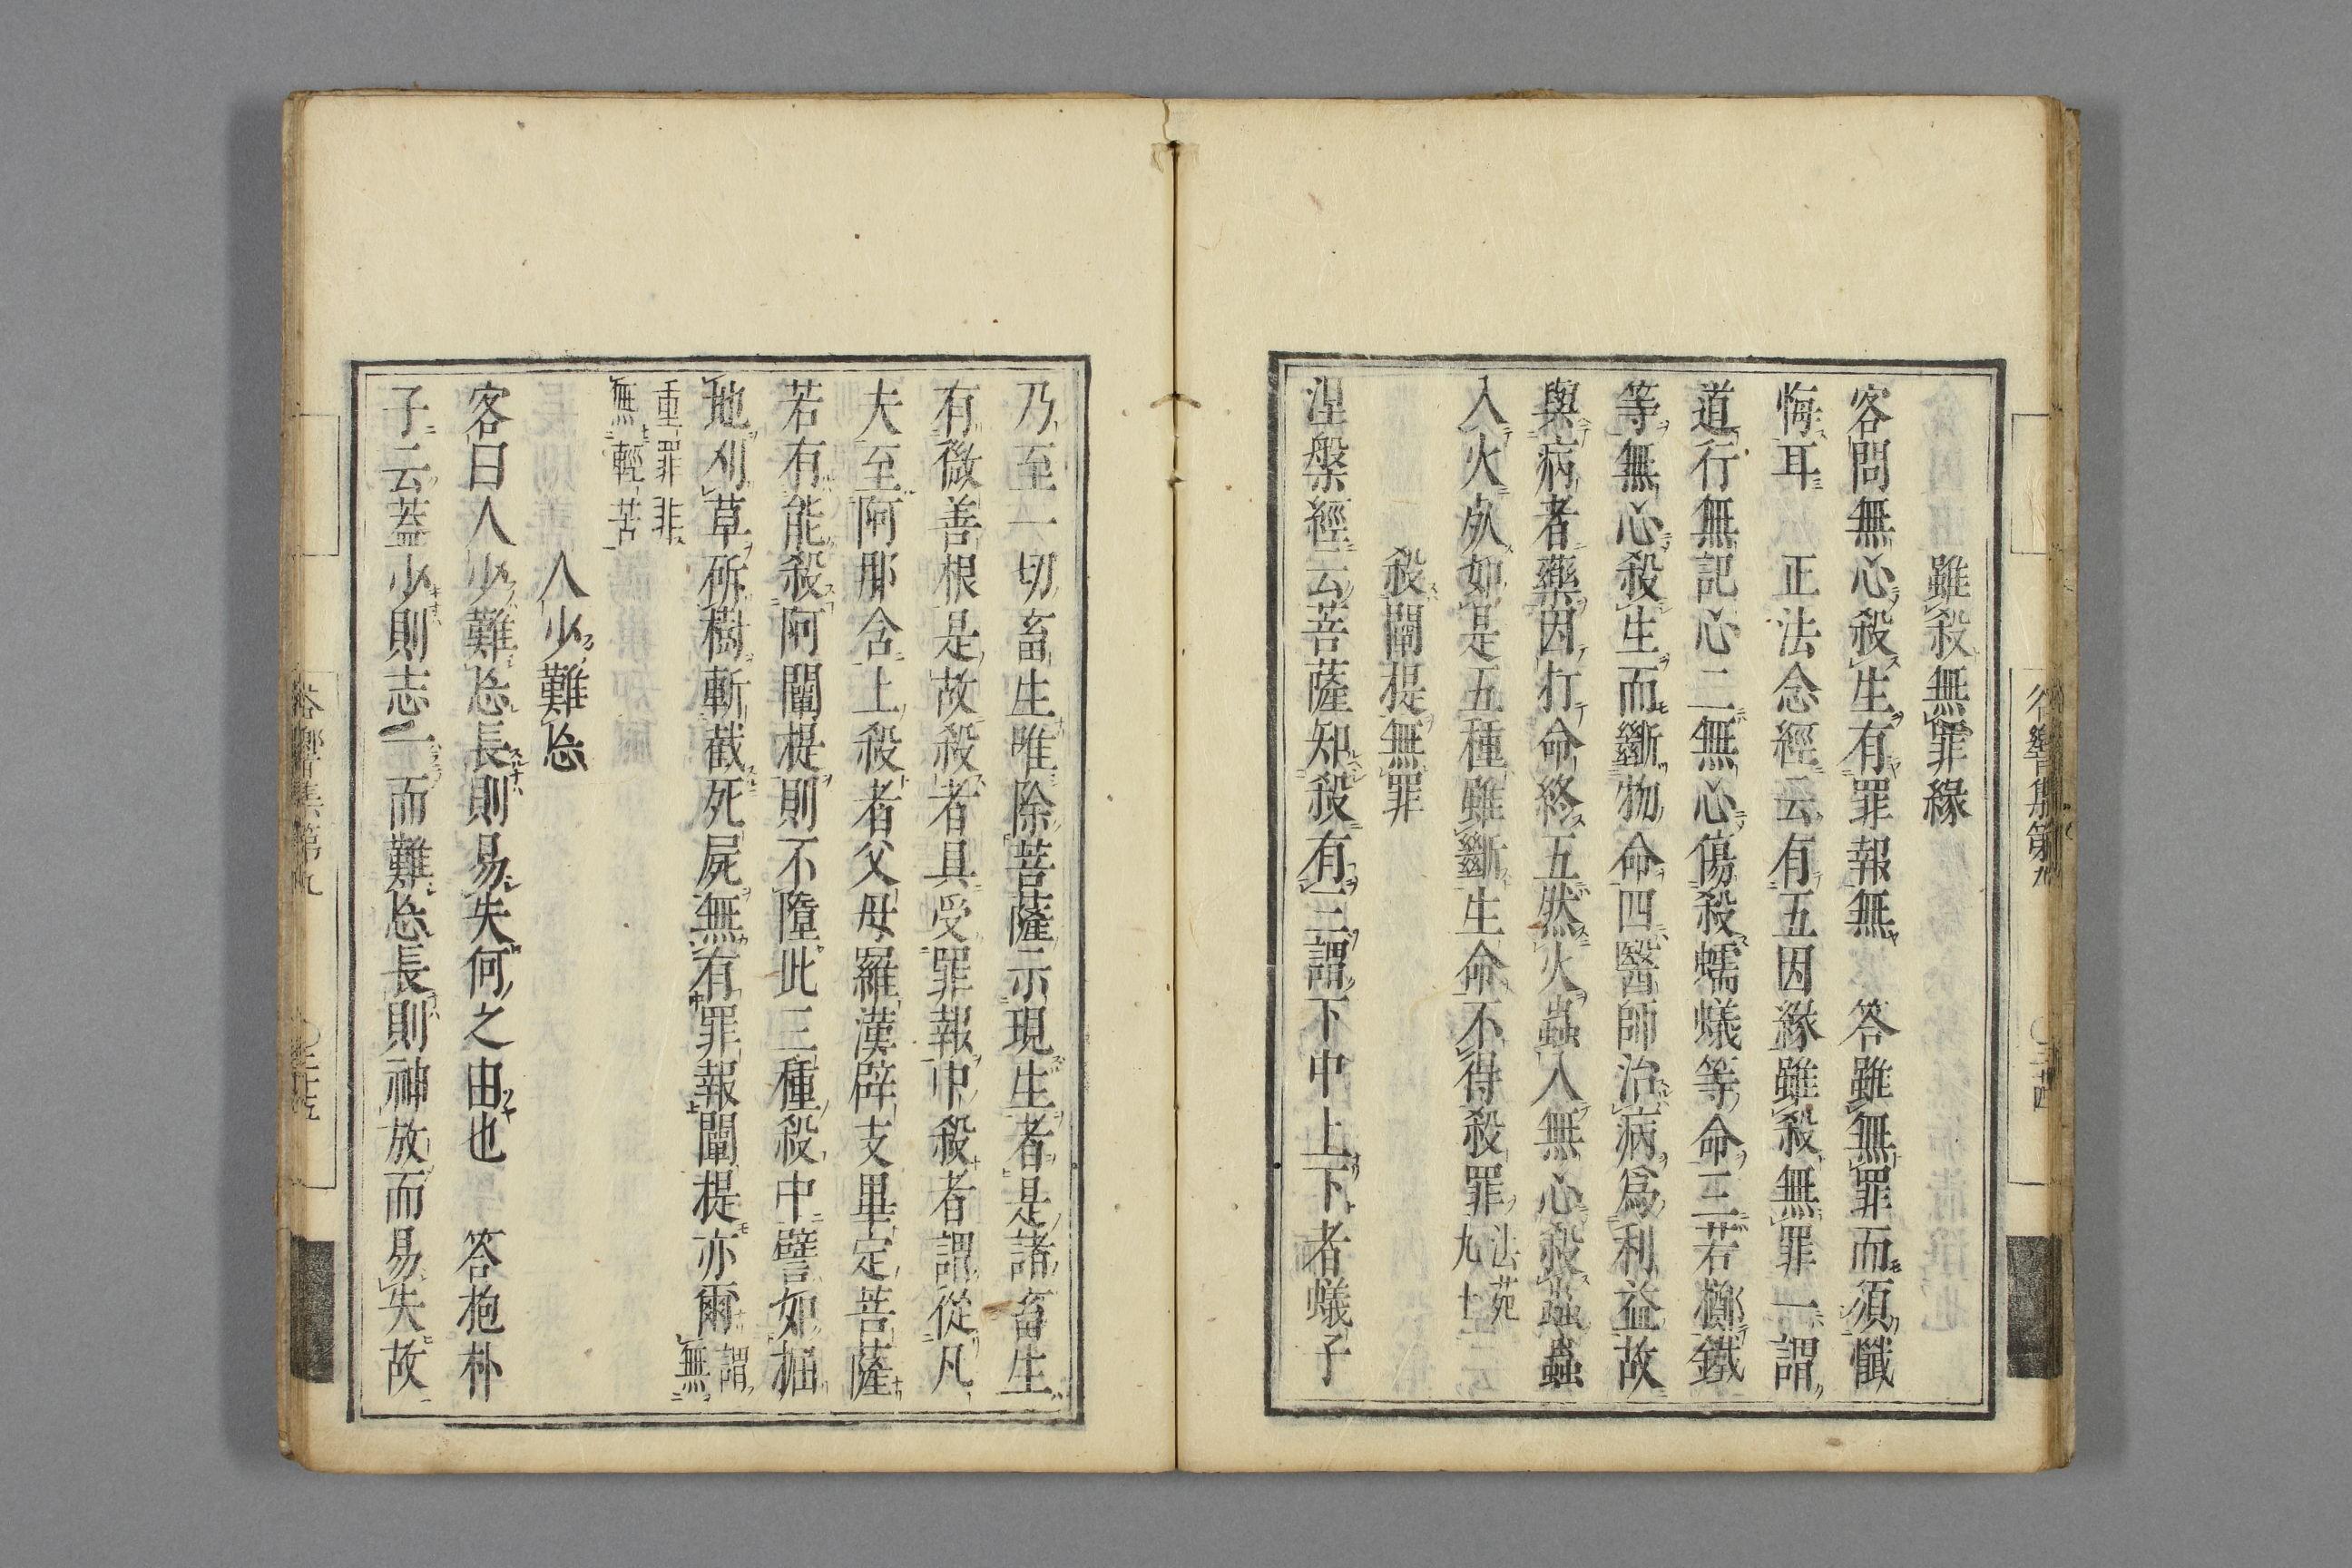 雖殺無罪緣
客問無心殺生有罪報無　答雖無罪而須懺
悔耳　正法念經云有五因緣雖殺無罪一謂
道行無記心二無心傷殺蠕蟻等命三若擲鐵
等無心殺生而斷物命四醫師治病爲利益故
與病者藥因打命終五然火蟲入無心殺蟲蟲
入火死如是五種雖斷生命不得殺罪法苑
九十
殺闡提無罪
涅槃經云菩薩知殺有三謂下中上下者蟻子
乃至一切畜生唯除菩薩示現生者是諸畜生
有微善根是故殺者具受罪報中殺者謂從凡
夫至阿那含上殺者父母羅漢辟支畢定菩薩
若有能殺阿闡提則不墮此三種殺中譬如掘
地刈草斫樹斬截死屍無有罪報闡提亦爾謂
無
重罪非
無輕苦
人少難忘
客曰人少難忘長則易失何之由也　答抱朴
子云蓋少則志一而難忘長則神放而易失故
谷響集第九
三十四
谷響集第九